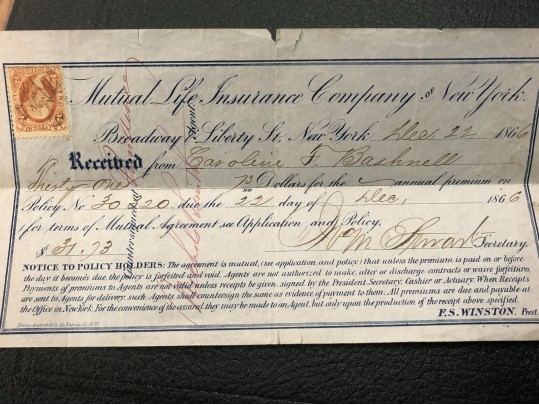 Mutual Life Insurance Company of New York.
Broadway & Liberty St. New York Dec 22 1866
Received from Caroline F. Bashnell
Thirty One 73/100 Dollars for the annual premium on
Policy No 30020 due the 22 day of Dec, 1866
(for terms of Mutual Agreement see Application and Policy.
$31.73 Secretary.
NOTICE TO POLICY HOLDERS: The agreement is mutual, (see application and policy) that unless the premium is paid on or before
the day it becomes due the policy is forfeited and void. Agents are not authorized to make, alter or discharge contracts or waive forfeitures.
Payments of premiums to Agents are not valid unless receipts be given, signed by the President, Secretary, Cashier or Actuary. When Receipts
are sent to Agents for delivery, such Agents shall countersign the same as evidence of payment to them. All premiums are due and payable at
the Office in New York. For the convenience of the assured they may be made to an Agent, but only upon the production of the receipt above specified.
F.S. WINSTON, Prest.
Countersigned at
Agent